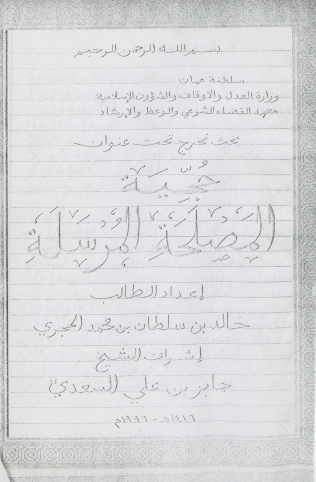 بسم الله الرحمن الرحيم
سلطنة عمان
وزارة العدل والاوقاف والشؤون الإسلامية
معهد القضاء الشرعي والوعظ والإرشاد
بحث تخرج تحت عنوان
حُجِّيَة
المَصلَحَةِ المُرسَلَةِ
إعداد الطالب
خالد بن سلطان بن محمد الحجري
إشراف الشيخ
جابر بن علي السعدي
١٤١٦هـ - ١٩٩٦م